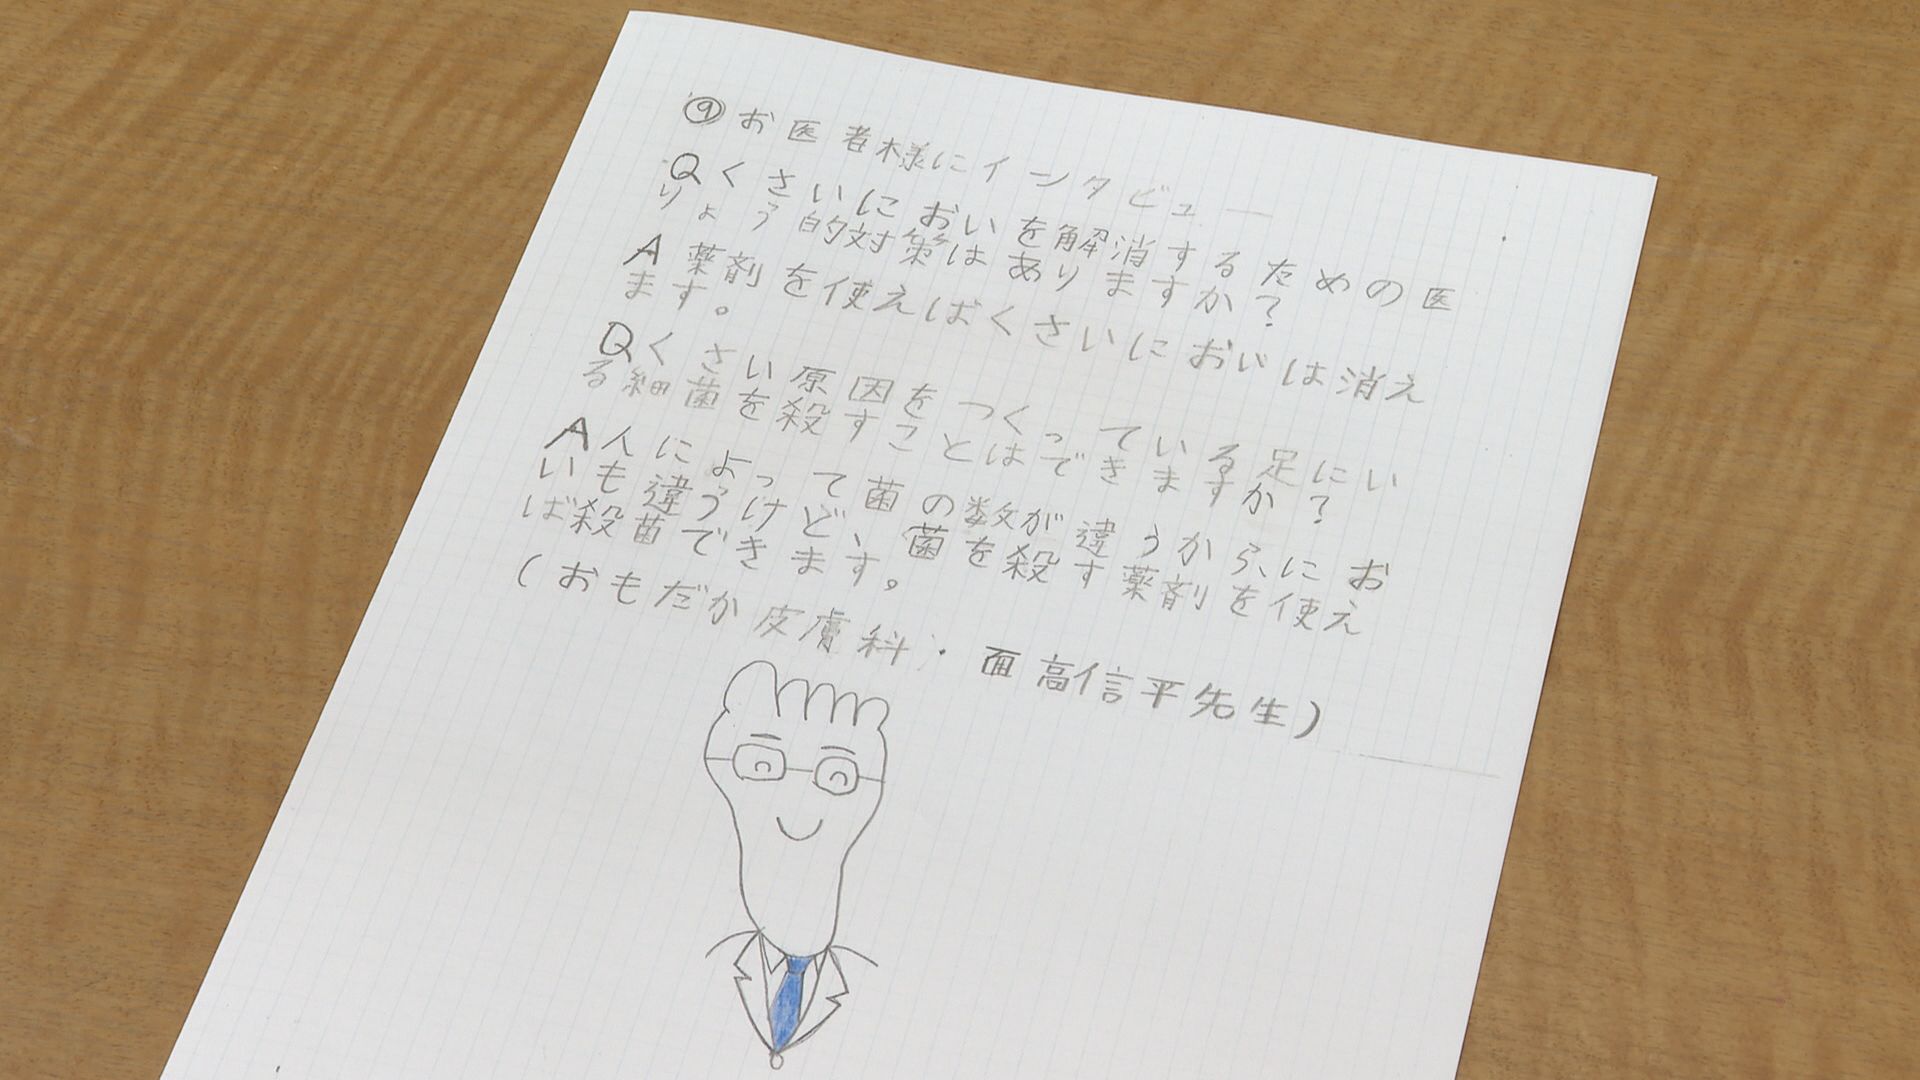 ⑨お医者様にインタビュー
Qくさいにおいを解消するための医
りょう的対策はありますか?
A薬剤を使えばくさいにおいは消え
ます。
Qくさい原因をつくっている足にい
る細菌を殺すことはできますか?
A人によって菌の数が違うから、にお
いも違うけど、菌を殺す薬剤を使え
ば殺菌できます。
(おもだか皮膚科・面高信平先生)